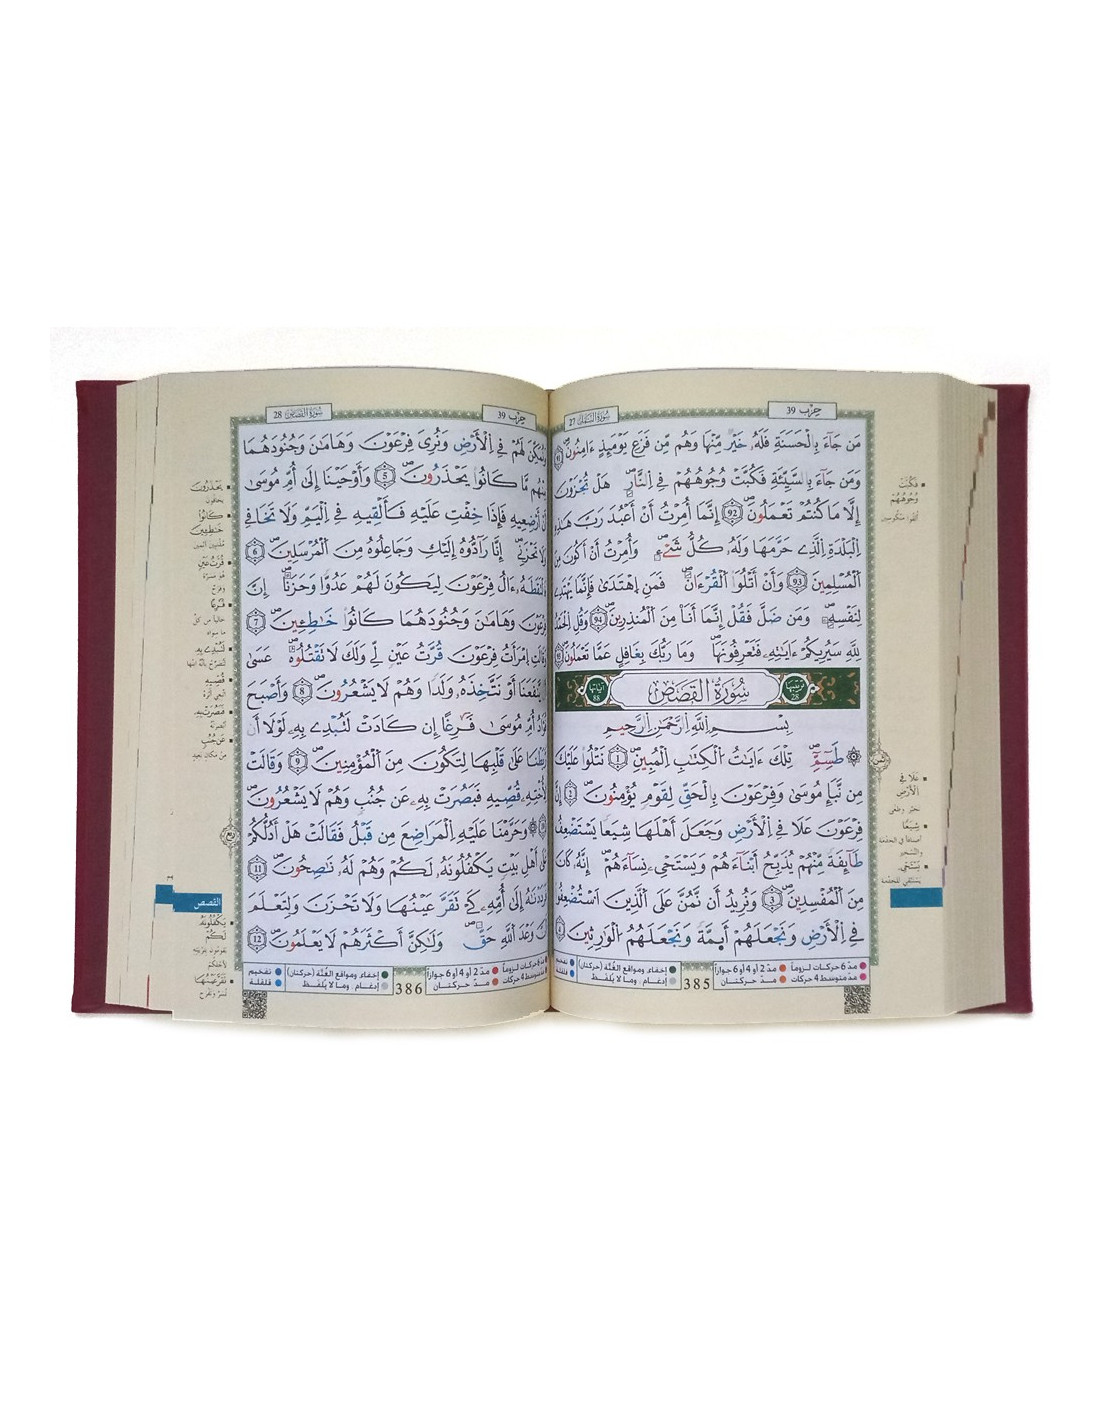 حِزْب 39
سُورَةُ النَّمْل 27
مَن جَآءَ بِالْحَسَنَةِ فَلَهُۥ خَيْرٌ مِّنْهَا وَهُم مِّن فَزَعِ يَوْمَئِذٍ ءَامِنُونَ
وَمَن جَآءَ بِالسَّيِّئَةِ فَكُبَّتْ وُجُوهُهُمْ فِي النَّارِ هَلْ تُجْزَوْنَ
إِلَّا مَا كُنتُمْ تَعْمَلُونَ 92 إِنَّمَآ أُمِرْتُ أَنْ أَعْبُدَ رَبَّ هَٰذِهِ
اِلْبَلْدَةِ اِلَّذِے حَرَّمَهَا وَلَهُۥ كُلُّ شَےْءٍ وَأُمِرْتُ أَنْ أَكُونَ مِنَ
اَلْمُسْلِمِينَ 93 وَأَنْ أَتْلُوَا اَلْقُرْءَانَ فَمَنِ اِهْتَدَىٰ فَإِنَّمَا يَهْتَدِے
لِنَفْسِهِۦ وَمَن ضَلَّ فَقُلْ إِنَّمَآ أَنَا مِنَ اَلْمُنذِرِينَ 94 وَقُلِ اِلْحَمْدُ
لِلهِ سَيُرِيكُمُۥٓ ءَايَٰتِهِۦ فَتَعْرِفُونَهَا وَمَا رَبُّكَ بِغَٰفِلٍ عَمَّا تَعْمَلُونَ
ترتيبها 28
سُورَةُ القَصَصِ
آياتها 88
بِسْمِ اِللَّهِ اِلرَّحْمَٰنِ اِلرَّحِيمِ
طَسِٓمِّٓ تِلْكَ ءَايَٰتُ اُلْكِتَٰبِ اِلْمُبِينِ 1 نَتْلُواْ عَلَيْكَ
مِن نَّبَإِ مُوسَىٰ وَفِرْعَوْنَ بِالْحَقِّ لِقَوْمٍ يُؤْمِنُونَ 2 إِنَّ
فِرْعَوْنَ عَلَا فِي اِلْأَرْضِ وَجَعَلَ أَهْلَهَا شِيَعًا يَسْتَضْعِفُ
طَآئِفَةً مِّنْهُمْ يُذَبِّحُ أَبْنَآءَهُمْ وَيَسْتَحْيِۦ نِسَآءَهُمْ إِنَّهُۥ كَانَ
مِنَ اَلْمُفْسِدِينَ 3 وَنُرِيدُ أَن نَّمُنَّ عَلَى اَلَّذِينَ اَسْتُضْعِفُواْ
فِي اِلْأَرْضِ وَنَجْعَلَهُمُۥٓ أَئِمَّةً وَنَجْعَلَهُمُ اُلْوَٰرِثِينَ 4
فَكُبَّتْ
وُجُوهُهُمْ
عَلَا فِي
اِلْأَرْضِ
تجبّر وطغى
شِيَعًا
أصنافا في الخدمة
والتسخير
يَسْتَحْيِ
يستبقي للخدمة
مدّ 6 حركات لزوماً
مدّ 2 أو 4 أو 6 جوازاً
إخفاء، ومواقع الغُنَّة (حركتان)
تفخيم
مدّ متوسط 4 حركات
مدّ حركتان
إدغام، وما لا يُلفظ
قلقلة
385
حِزْب 39
سُورَةُ القَصَصِ 28
وَنُمَكِّنَ لَهُمْ فِي اِلْأَرْضِ وَنُرِيَ فِرْعَوْنَ وَهَٰمَٰنَ وَجُنُودَهُمَا
مِنْهُم مَّا كَانُواْ يَحْذَرُونَ 5 وَأَوْحَيْنَآ إِلَىٰٓ أُمِّ مُوسَىٰٓ
أَنْ أَرْضِعِيهِ فَإِذَا خِفْتِ عَلَيْهِ فَأَلْقِيهِ فِي اِلْيَمِّ وَلَا تَخَافِي
وَلَا تَحْزَنِي إِنَّا رَآدُّوهُ إِلَيْكِ وَجَاعِلُوهُ مِنَ اَلْمُرْسَلِينَ 6
فَالْتَقَطَهُۥٓ ءَالُ فِرْعَوْنَ لِيَكُونَ لَهُمْ عَدُوًّا وَحَزَنًا إِنَّ
فِرْعَوْنَ وَهَٰمَٰنَ وَجُنُودَهُمَا كَانُواْ خَٰطِـِٔينَ 7
وَقَالَتِ اِمْرَأَتُ فِرْعَوْنَ قُرَّتُ عَيْنٍ لِّي وَلَكَ لَا تَقْتُلُوهُ عَسَىٰٓ
أَنْ يَّنفَعَنَآ أَوْ نَتَّخِذَهُۥ وَلَدًا وَهُمْ لَا يَشْعُرُونَ 8 وَأَصْبَحَ
فُؤَادُ أُمِّ مُوسَىٰ فَٰرِغًا إِن كَادَتْ لَتُبْدِے بِهِۦ لَوْلَآ أَن
رَّبَطْنَا عَلَىٰ قَلْبِهَا لِتَكُونَ مِنَ اَلْمُؤْمِنِينَ 9 وَقَالَتْ
لِأُخْتِهِۦ قُصِّيهِ فَبَصُرَتْ بِهِۦ عَن جُنُبٍ وَهُمْ لَا يَشْعُرُونَ
وَحَرَّمْنَا عَلَيْهِ اِلْمَرَاضِعَ مِن قَبْلُ فَقَالَتْ هَلْ أَدُلُّكُمْ
عَلَىٰٓ أَهْلِ بَيْتٍ يَكْفُلُونَهُۥ لَكُمْ وَهُمْ لَهُۥ نَٰصِحُونَ 11
فَرَدَدْنَٰهُ إِلَىٰٓ أُمِّهِۦ كَےْ تَقَرَّ عَيْنُهَا وَلَا تَحْزَنَ وَلِتَعْلَمَ
أَنَّ وَعْدَ اَللَّهِ حَقٌّ وَلَٰكِنَّ أَكْثَرَهُمْ لَا يَعْلَمُونَ 12
يَحْذَرُونَ
يخافون
كَانُواْ
خَٰطِـِٔينَ
مذنبين آثمين
قُرَّتُ عَيْنٍ
هو مسرّة
وفرح
فَٰرِغًا
خاليا من كلّ
ما سواه
لَتُبْدِے بِهِۦ
لتصرّح بأنّه ابنها
قُصِّيهِ
اتّبعي أثره
فَبَصُرَتْ بِهِۦ
أبصرته
عَن جُنُبٍ
من مكان بعيد
القصص
يَكْفُلُونَهُۥ
لَكُمْ
يقومون بتربيته
لأجلكم
تَقَرَّ عَيْنُهَا
تُسرّ وتفرح
مدّ 6 حركات لزوماً
مدّ 2 أو 4 أو 6 جوازاً
إخفاء، ومواقع الغُنَّة (حركتان)
تفخيم
مدّ متوسط 4 حركات
مدّ حركتان
إدغام، وما لا يُلفظ
قلقلة
386